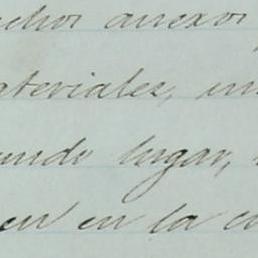 echos anexos
ateriales, un
undo lugar,
en en la c